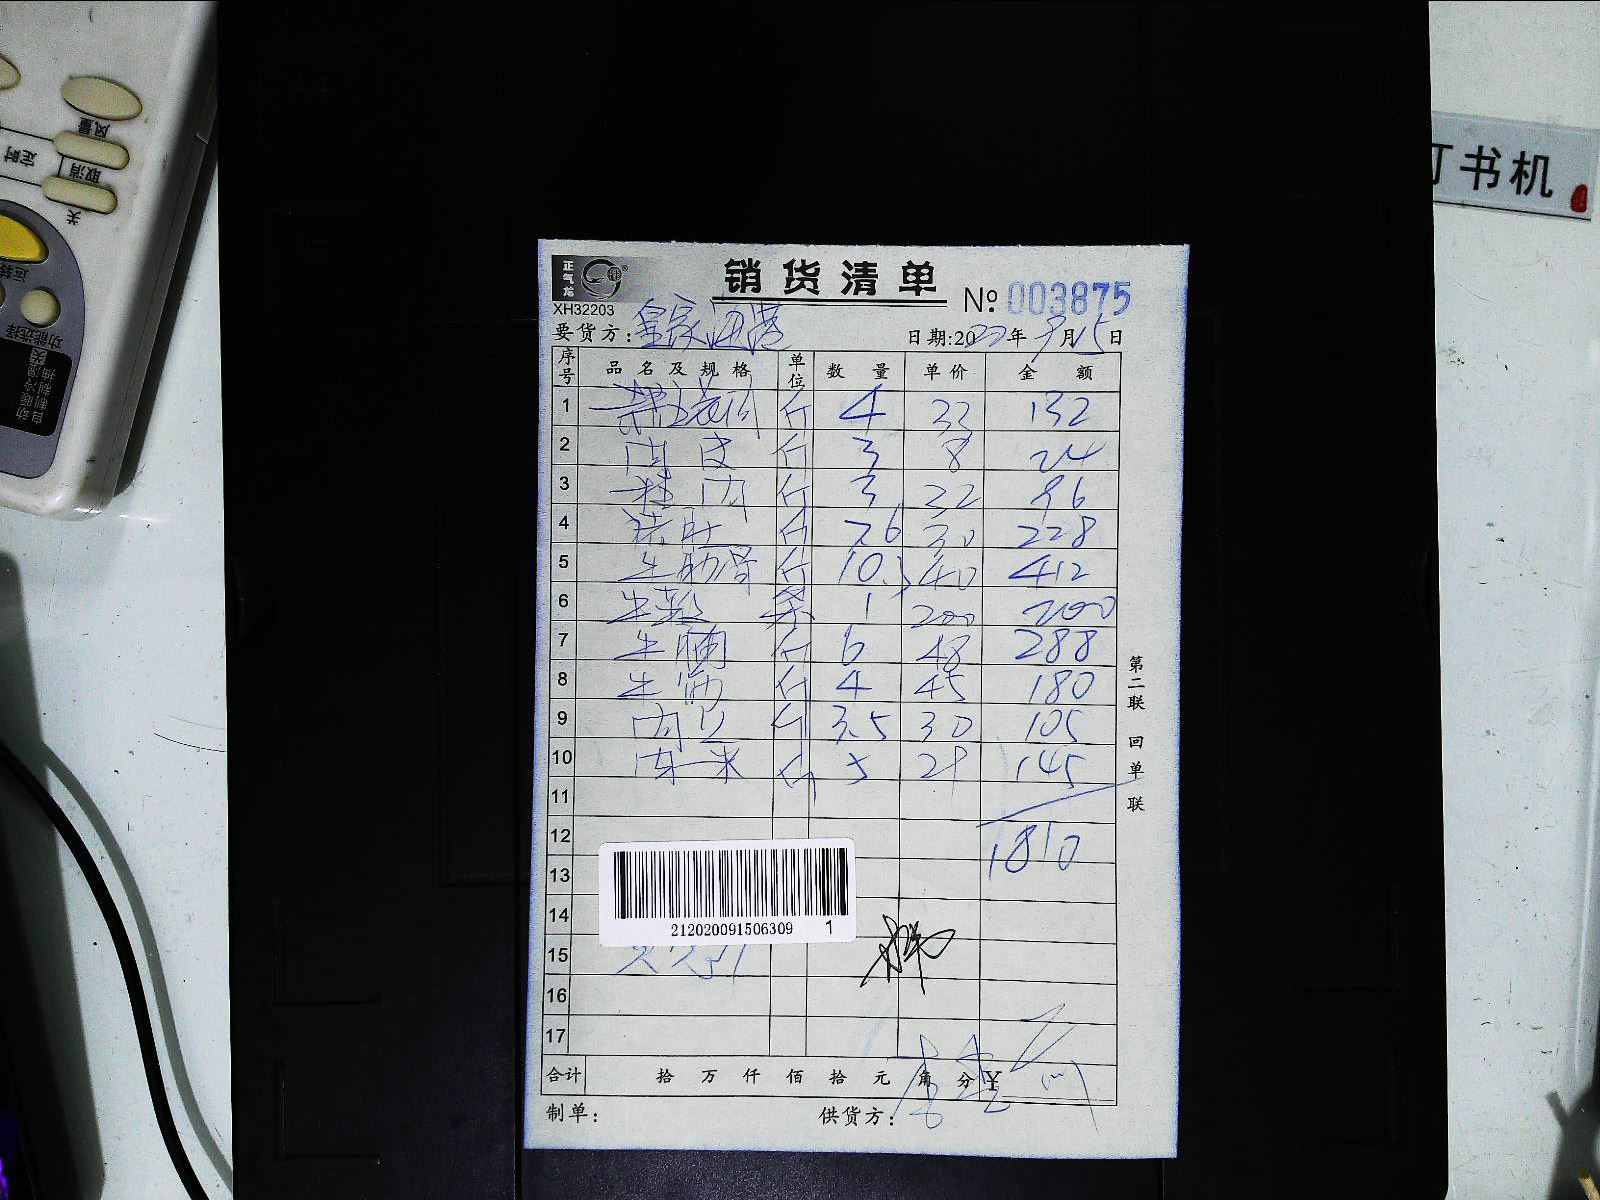 风量
定时
取消
关
运转
功能选择
自动
制暖
制冷
抽湿
书机
正气龙
销货清单
XH32203
№ 003875
要货方:
日期:20 年9月15日
序号 品名及规格 单位 数量 单价 金额
1 斤 4 33 132
2 肉皮 斤 3 8 24
3 肉 斤 3 32 96
4 猪肝 斤 7.6 30 228
5 牛肋骨 斤 10.3 40 412
6 牛 条 1 200 200
7 牛腩 斤 6 48 288
8 牛 斤 4 45 180
9 肉 斤 3.5 30 105
10 斤 5 29 145
11
12 1810
13
212020091506309 1
14
15
16
17
合计 拾 万 仟 佰 拾 元 角 分 ¥
制单: 供货方:
第二联 回单联